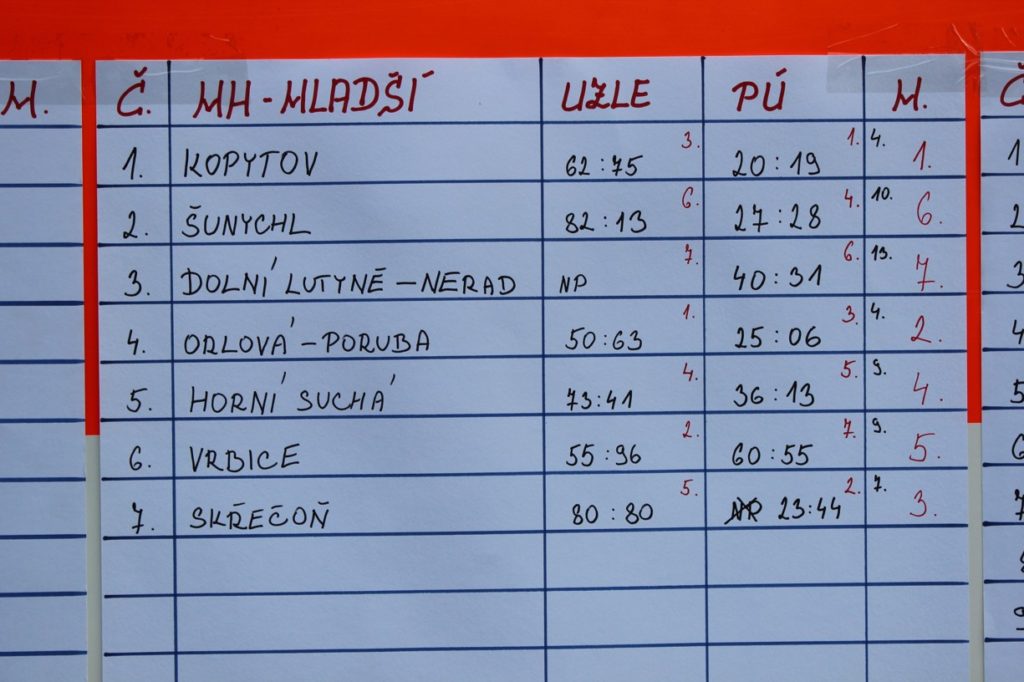 M. Č. MH - MLADŠÍ UZLE PÚ M. Č
1. KOPYTOV 62:75 3. 20:19 1. 4. 1. 1
2. ŠUNYCHL 82:13 6. 27:28 4. 10. 6. 2
3. DOLNÍ LUTYNĚ - NERAD NP 7. 40:31 6. 13. 7. 3
4. ORLOVÁ - PORUBA 50:63 1. 25:06 3. 4. 2. 4
5. HORNÍ SUCHÁ 73:41 4. 36:13 5. 9. 4. 5
6. VRBICE 55:96 2. 60:55 7. 9. 5. 6
7. SKŘEČOŇ 80:80 5. NP 23:44 2. 7. 3. 7
8
9